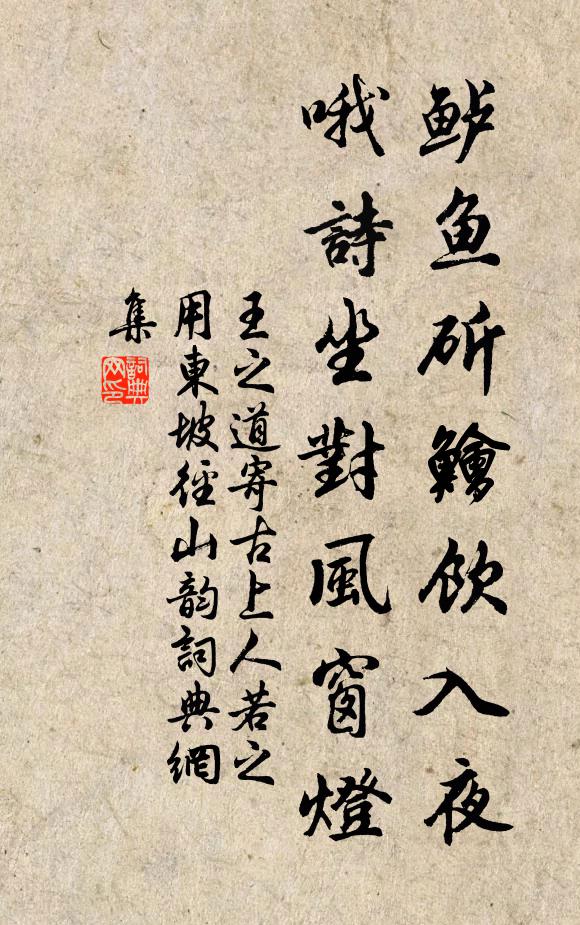 鲈魚斫鱠飲入夜
哦詩坐對風窗燈
王之道寄古上人若之
用東坡徑山韵詞典網
集
詞典
网印